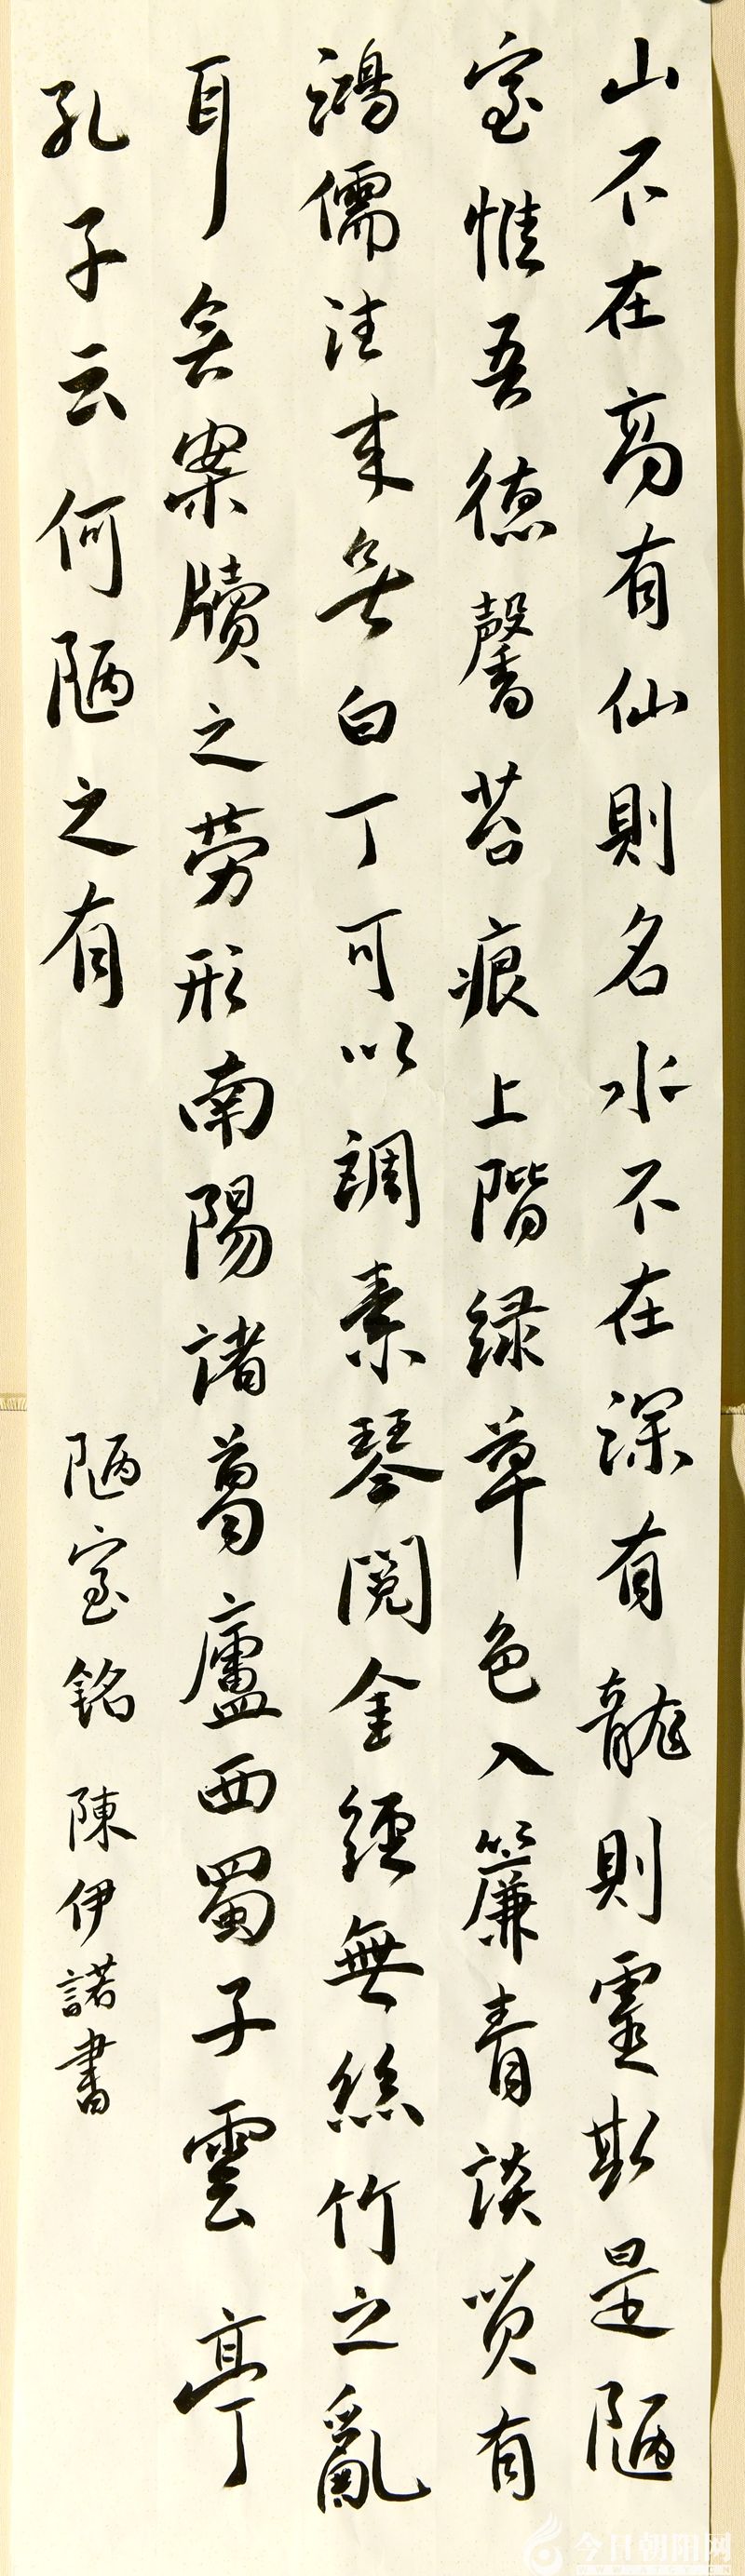 山不在高有仙則名水不在深有龍則靈斯是陋
室惟吾德馨苔痕上階緑草色入簾青談笑有
鴻儒往来無白丁可以調素琴閱金經無絲竹之亂
耳無案牘之勞形南陽諸葛廬西蜀子雲亭
孔子云何陋之有
陋室銘 陳伊諾書
今日朝阳网